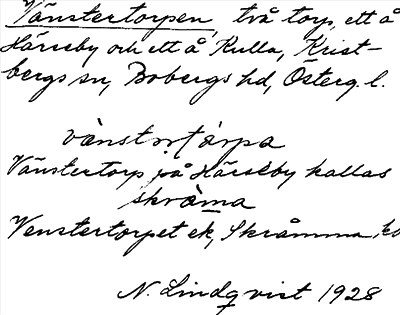 Vänstertorpen, två torp, ett å
Härseby och ett å Kulla, Krist-
bergs sn, Bobergs hd, Österg. l.
vànstərtårpa
Vänstertorp på Härseby kallas
skràma
Venstertorpet ek, Skråmma,
N. Lindqvist 1928